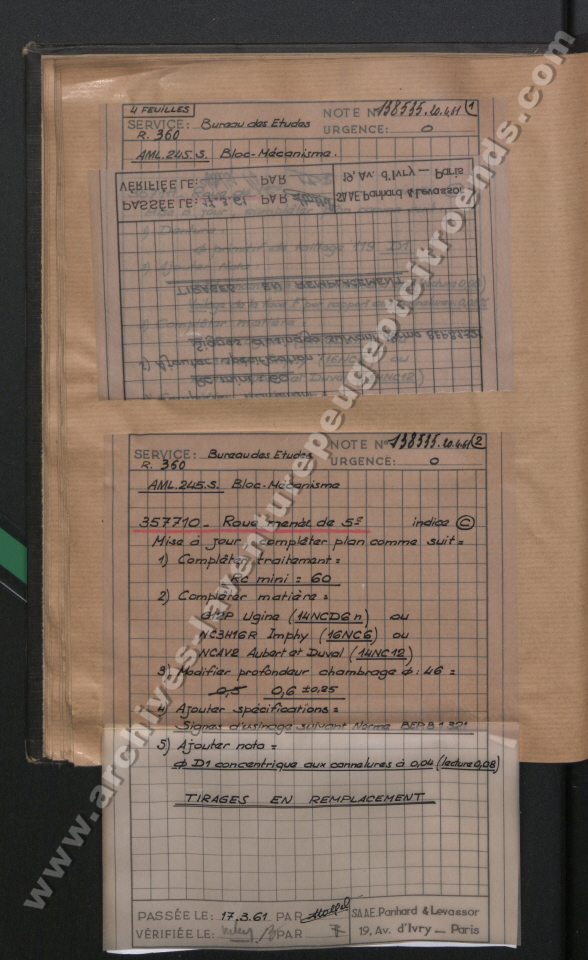 4 FEUILLES
SERVICE: Bureau des Etudes
R. 360
NOTE N° 138535. 20.4.61 1
URGENCE: 0
AML.245.S. Bloc-Mécanisme.
VÉRIFIÉE LE: PAR 19, Av. d'Ivry — Paris
PASSÉE LE: 17.3.61 PAR SAAE. Panhard & Levassor
TIRAGES EN REMPLACEMENT
SERVICE: Bureau des Etudes
R. 360
NOTE N° 138535. 20.4.61 2
URGENCE: 0
AML.245.S. Bloc-Mécanisme
357710 - Roue menée de 5e indice C
Mise à jour, compléter plan comme suit =
1) Compléter traitement =
RC mini = 60
2) Compléter matière =
GMP Ugine (14NCD6 n) ou
NC3H16R Imphy (16NC6) ou
NCAV2 Aubert et Duval (14NC12)
3) Modifier profondeur chambrage ϕ: 46 =
0,5 0,6 ±0,25
4) Ajouter spécifications =
Signes d'usinage suivant Norme BEP.B1.321
5) Ajouter nota =
ϕ D1 concentrique aux cannelures à 0,04 (lecture 0,08)
TIRAGES EN REMPLACEMENT
PASSÉE LE: 17.3.61 PAR
SAAE. Panhard & Levassor
VÉRIFIÉE LE: PAR
19, Av. d'Ivry — Paris
www.archives-laventurepeugeotcitroends.com